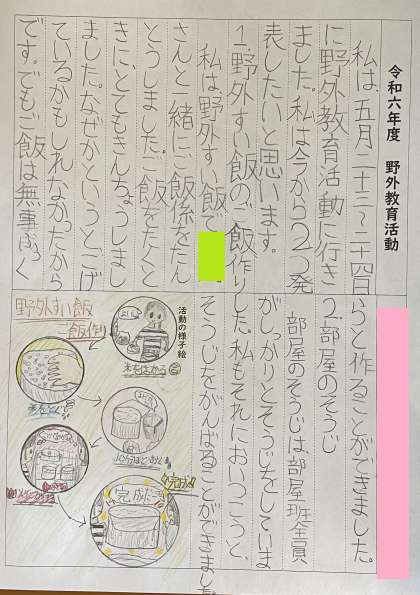 令和六年度 野外教育活動
私は、五月二十三〜二十四日
に野外教育活動に行き
ました。私は今から2つ発
表したいと思います。
1.野外すい飯のご飯作り
私は野外すい飯で
さんと一緒にご飯係をたん
とうしました。ご飯をたくと
きに、とてもきんちょうしまし
ました。なぜかというとこげ
ているかもしれなかったから
です。でもご飯は無事ふっく
らと作ることができました。
2.部屋のそうじ
部屋のそうじは、部屋班全員
がしっかりとそうじをしていま
した。私もそれにおいつこうと、
そうじをがんばることができました。
活動の様子絵
野外すい飯
ご飯作り
米をはかる
完成